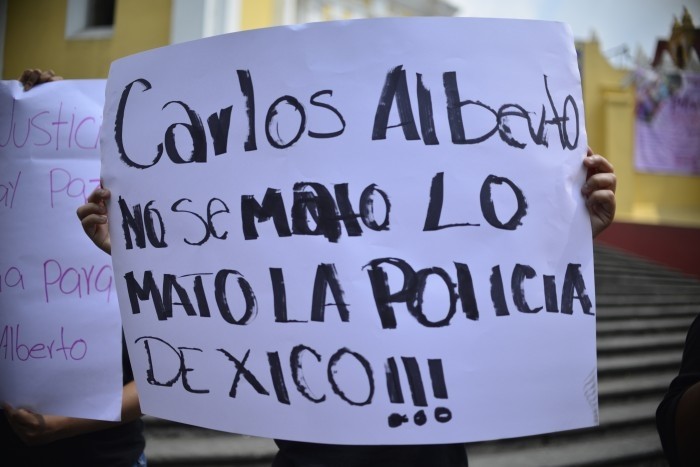 Carlos Alberto
NO Se Mato LO
MATO LA POLICIA
DE XICO!!!
Justic
y Pa
a Para
Alberto